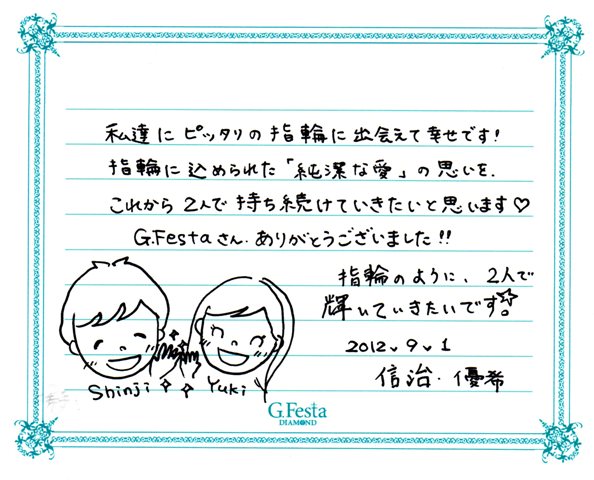 私達にピッタリの指輪に出会えて幸せです!
指輪に込められた「純潔な愛」の思いを、
これから2人で持ち続けていきたいと思います♡
G.Festaさん、ありがとうございました!!
指輪のように、2人で
輝いていきたいです!
2012、9、1
信治・優希
Shinji
Yuki
G.Festa
DIAMOND